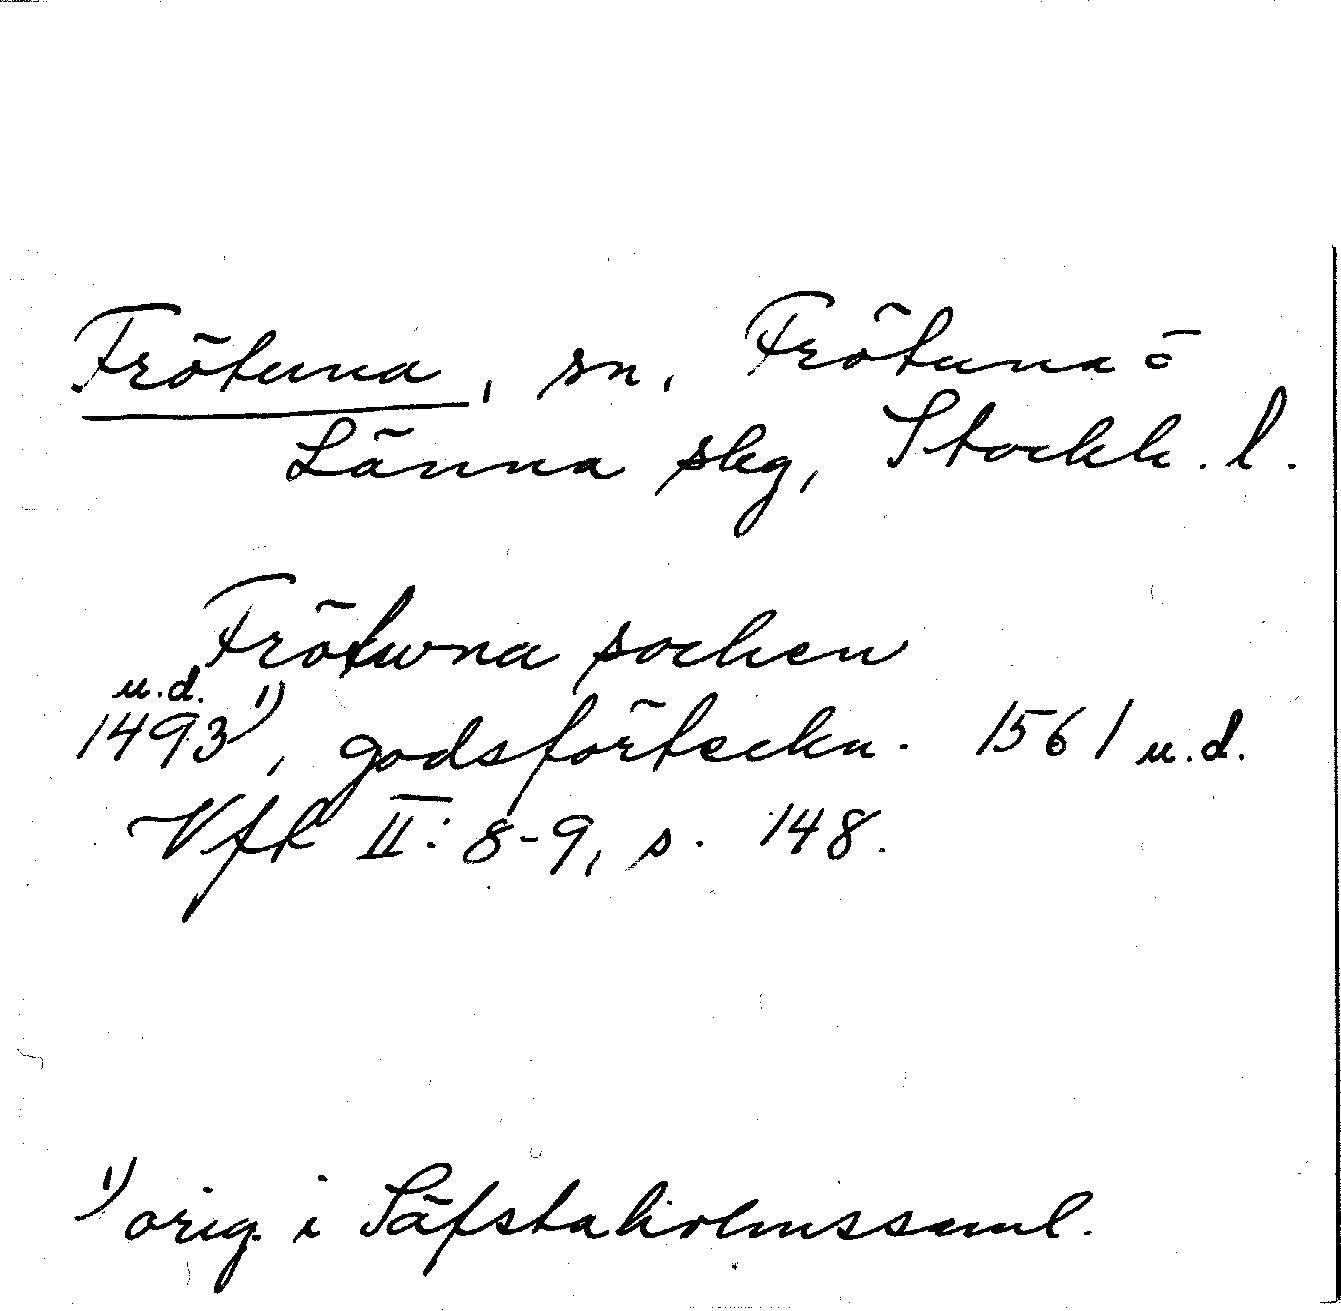 Frötuna, sn, Frötuna o
Länna skg, Stockh. l.
Frötwna sochen
u.d.
1493 1), godsförteckn. 1561 u.d.
Vfk II: 8-9, s. 148.
1) orig. i Säfstaholmssaml.